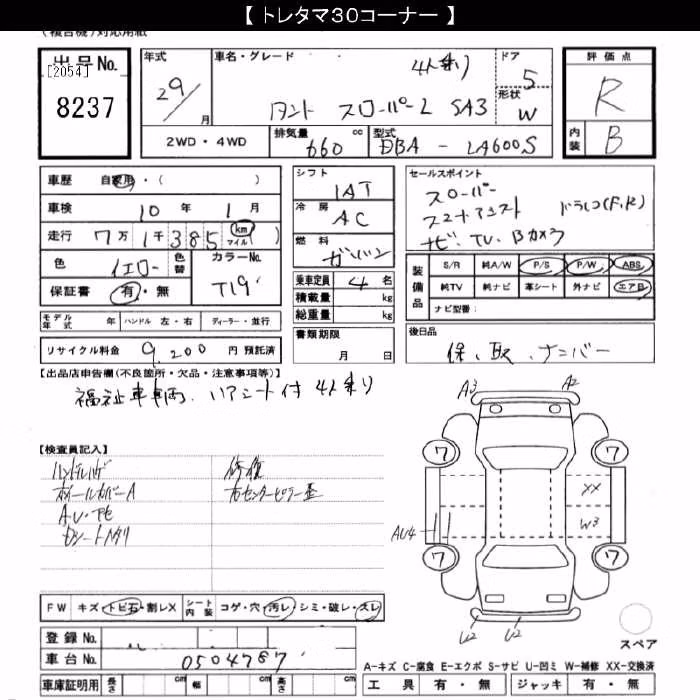 【 トレタマ30コーナー 】
(複合機)対応用紙
出品No.
[2054]
8237
年式
29/
月
車名・グレード
4人乗り
タント スローパーL SA3
ドア
5
形状
W
評価点
R
内装
B
2WD・4WD
排気量
660
cc
型式
DBA - LA600S
車歴 自家用・( )
車検 10年 1月
走行 7万1千385 km マイル ( )
色
イエロー
色替
カラーNo.
T19
保証書 有・無
モデル年式 年 ハンドル 左・右 ディーラー・並行
リサイクル料金 9,200 円 預託済
シフト
1AT
冷房
AC
燃料
ガソリン
乗車定員 4 名
積載量 kg
総重量 kg
書類期限
月 日
セールスポイント
スローパー
スマートアシスト ドラレコ(F,R)
ナビ、TV、Bカメラ
装備品
S/R 純A/W P/S P/W ABS
純TV 純ナビ 革シート 外ナビ エアB
ナビ型番:
後日品
保、取、ナンバー
【出品店申告欄(不良箇所・欠品・注意事項等)】
福祉車輌、リアシート付 4人乗り
【検査員記入】
ハンドルハゲ
ホイールカバーA
修復
右センターピラー歪
シートヘタリ
A3
A2
7
7
XX
W3
AU4
7
7
U2
U2
スペア
FW キズ・トビ石・割レX
シート内装 コゲ・穴・汚レ・シミ・破レ・スレ
登録No.
車台No. 0504787
車庫証明用 長さ cm 幅 cm 高さ cm
A-キズ C-腐食 E-エクボ S-サビ U-凹ミ W-補修 XX-交換済
工具 有・無 ジャッキ 有・無